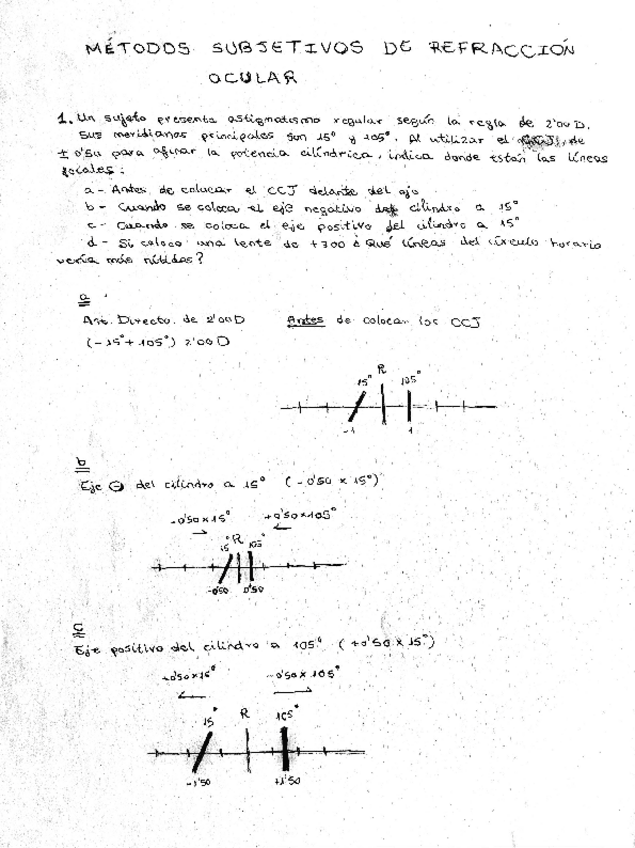 MÉTODOS SUBJETIVOS DE REFRACCIÓN
OCULAR
1. Un sujeto presenta astigmatismo regular según la regla de 2'00 D.
Sus meridianos principales son 15° y 105°. Al utilizar el de
± 0'50 para afinar la potencia cilíndrica, indica donde están las líneas
focales:
a- Antes de colocar el CCJ delante del ojo
b- Cuando se coloca el eje negativo del cilindro a 15°
c- Cuando se coloca el eje positivo del cilindro a 15°
d- Si coloco una lente de +300 ¿ Qué líneas del círculo horario
vería más nítidas?
a
Directo de 2'00D Antes de colocar los CCJ
(-15° + 105°) 2'00 D
15° R 105°
-1 1
b
Eje ⊖ del cilindro a 15° (-0'50 x 15°)
-0'50 x 15° +0'50 x 105°
15° R 105°
-0'50 0'50
c
Eje positivo del cilindro a 105° (+0'50 x 15°)
+0'50 x 15° -0'50 x 105°
15° R 105°
-1'50 +1'50